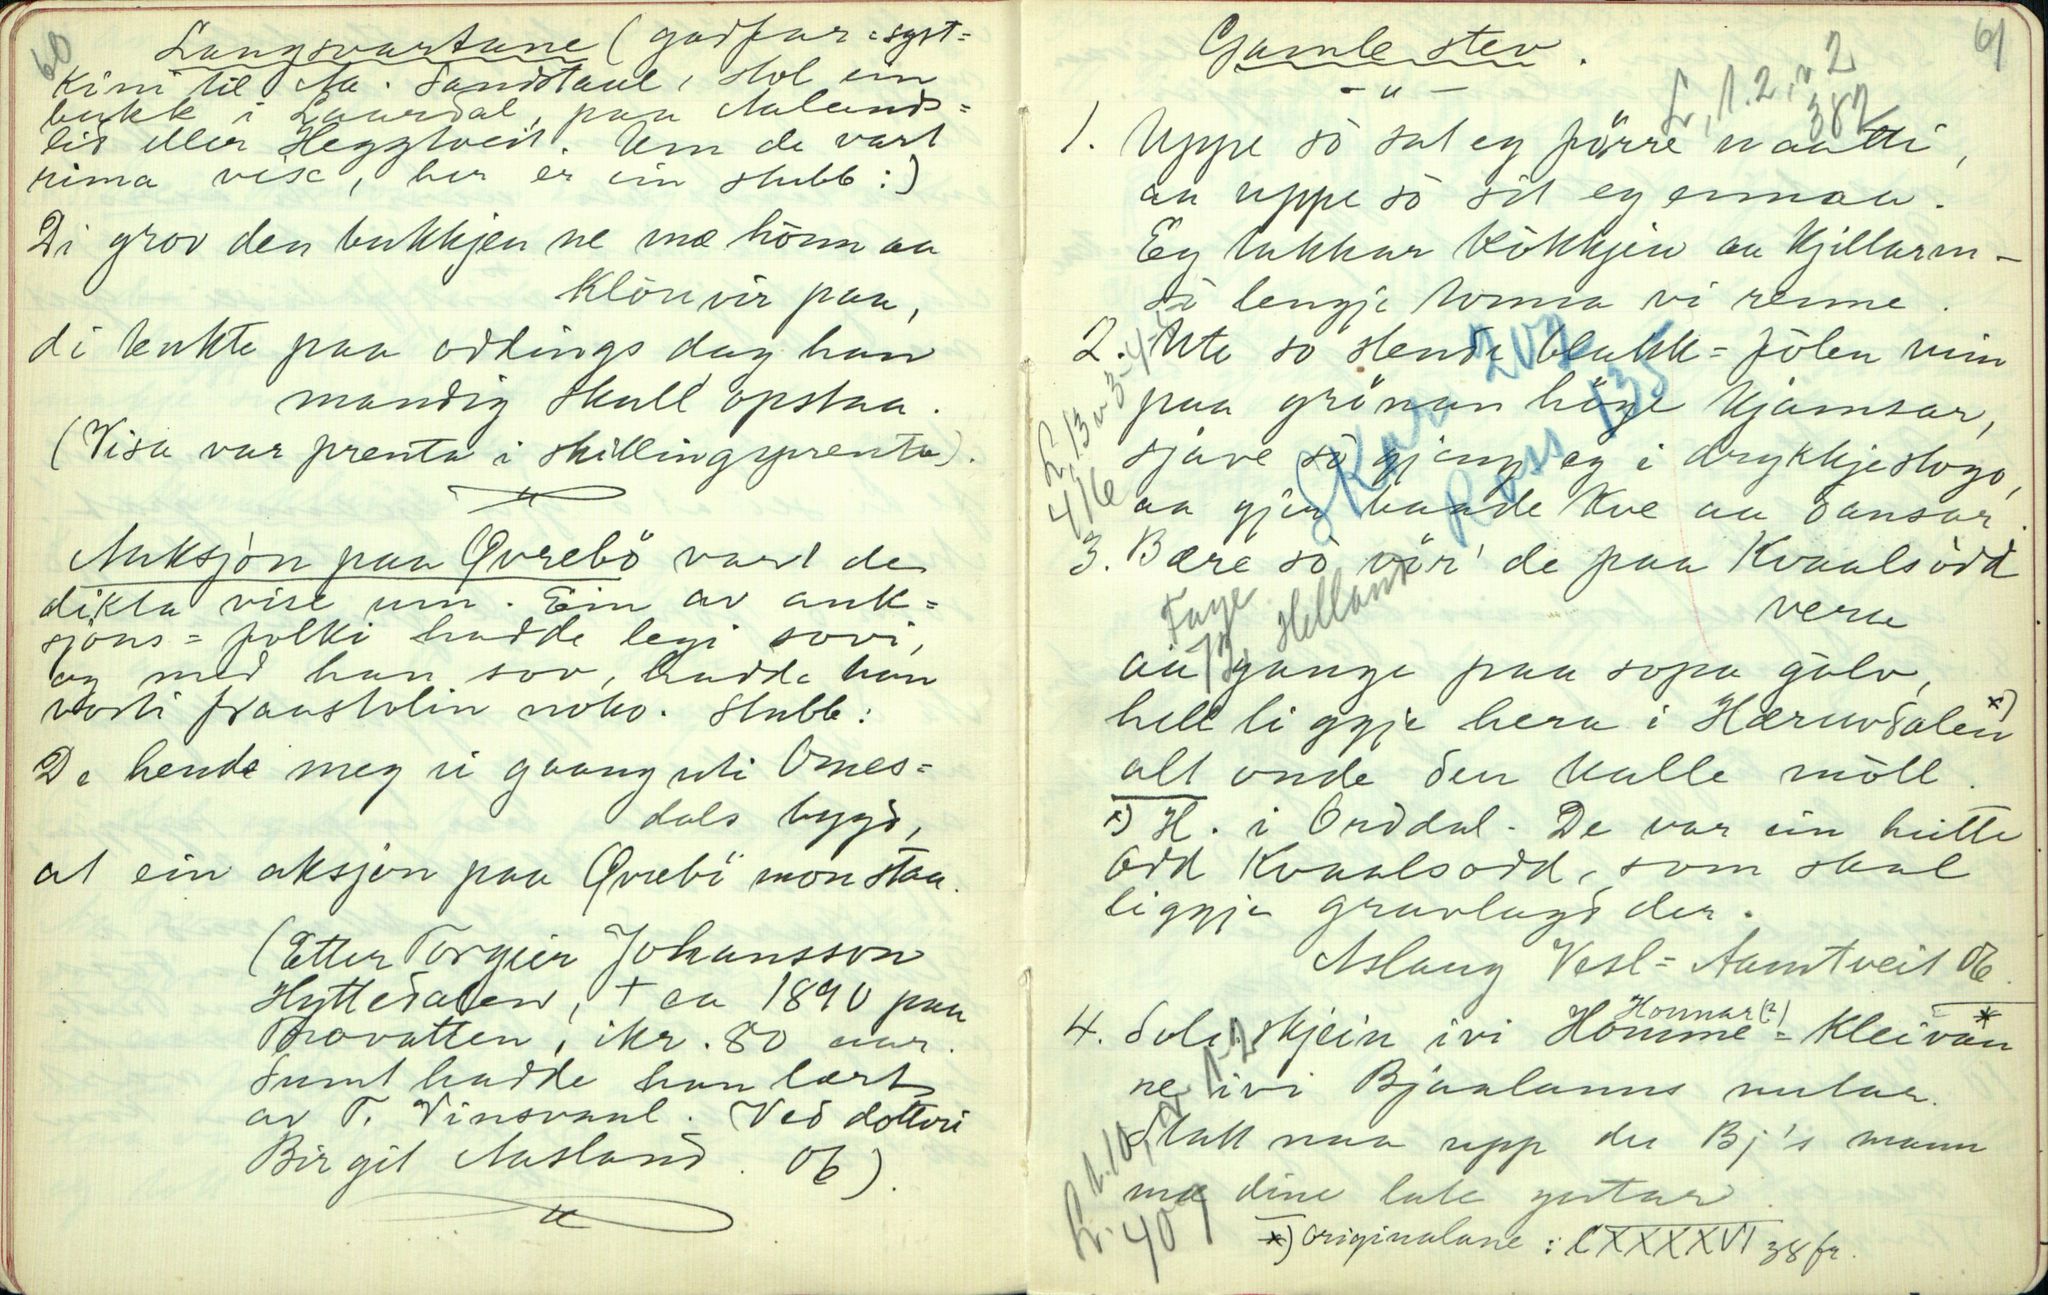 60
Langsvartane (godfar = syst=
kini til Aa. Sandstaul, stol ein
bukk i Laurdal, paa Aalands=
lid eller Heggtveit. Um de vart
rima vise, her er ein stubb:)
Di grov den bukkjen ne mæ hönn aa
klönvir paa,
di tenkte paa odlings dag han
mandig skull opstaa.
(Visa var prenta i skillingsprenta).
Auksjon paa Qvrebö vart de
dikta vise um. Ein av auk=
sjons=folki hadde legi sovi,
og med han sov, hadde han
vorti fraastolin noko. Stubb:
De hende meg ei gaang uti Omes=
dals bygd,
at ein aksjon paa Qvrebö mon staa.
(Etter Torgeir Johansson
Hyttedalen, + ca 1890 paa
Trovatten, ikr. 80 aar.
Sumt hadde han lært
av T. Vinsvaal. Ved dotteri
Birgit Aasland. 06).
61
Gamle stev.
- " -
L, 1.2, v 2
382
1. Uppe so sat eg förre naatti,
aa uppe so sit eg ennaa.
Eg takkar kökkjen aa kjillarn -
so lengje tonna vi renne.
2. Ute so stende blakk=folen min
paa grönan höge kjamsar,
sjave so gjeng eg i drykkjestogo,
aa gjer baade kve aa dansar.
L, 13 v 3-4
416
Skar 207
Ross 135
3. Bære so vör' de paa Kvaalsodd
vera
aa gange paa sopa golv,
hell liggje hera i Hæruvdalen x)
alt onde den kalle moll.
Faye
73, Helland
x) H. i Orddal. De var ein heitte
Odd Kvaalsodd, som skal
liggje gravlagd der.
Aslaug Vesl=Aamtveit 06.
4. Soli skjein ivi Homme=Kleivan *
Honnar(?)
ne ivi Bjaalanns nutar.
Statt naa upp du Bj's mann
mæ dine late gutar.
L. 1.10, v 1-2
407
*) Originalane: CXXXXVI 38 fr.